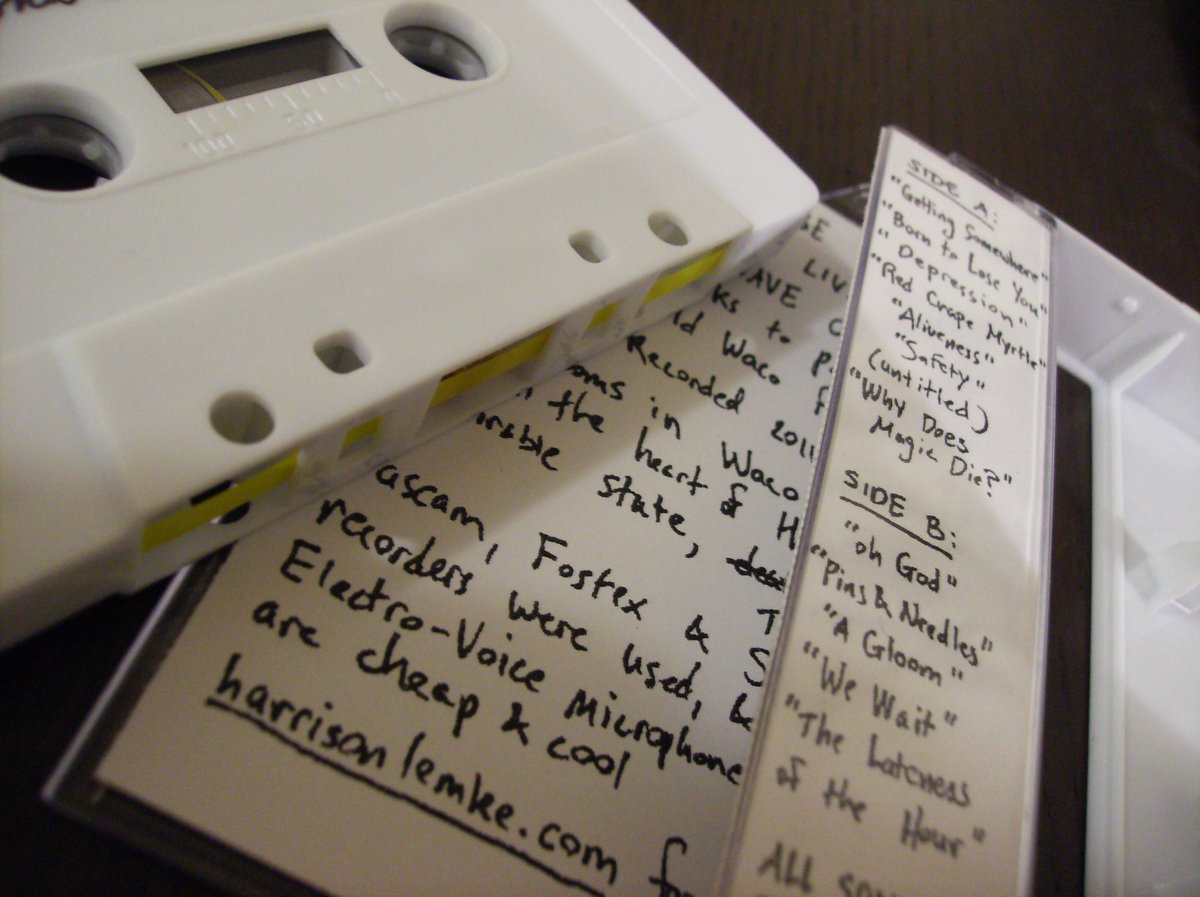 100 50 0
SE
LIV
AVE C
ks to p
ld Waco f
Recorded 2011
oms in Waco
the heart & H
rable state,
ascam, Fostex & S
recorders were used, &
Electro-Voice Microphone
are cheap & cool
harrisonlemke.com for
SIDE A:
"Getting Somewhere"
"Born to Lose You"
"Depression"
"Red Crape Myrtle"
"Aliveness"
"Safety"
(untitled)
"Why Does
Magic Die?"
SIDE B:
"oh God"
"Pins & Needles"
"A Gloom"
"We Wait"
"The Lateness
of the Hour"
ALL son